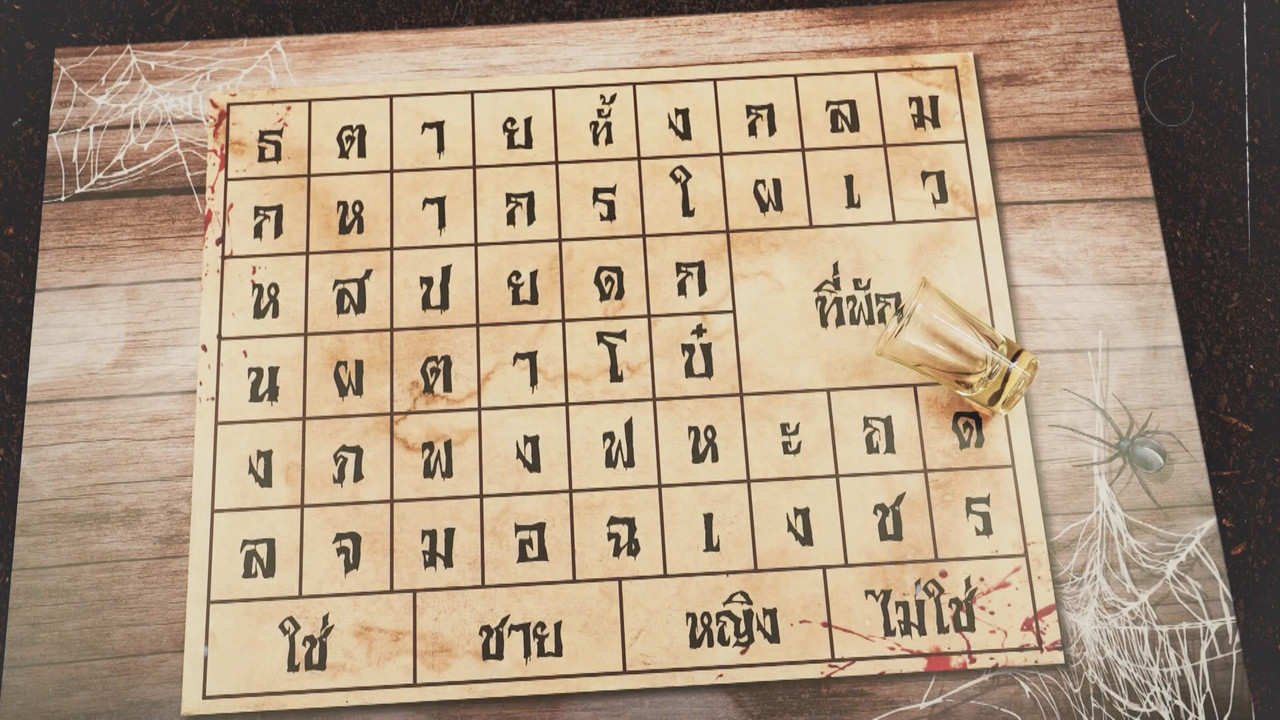 ธ ต า ย ทั้ ง ก ล ม
ก ห า ก ร ใ ผ เ ว
ห ส ป ย ด ก
ที่พัก
น ผ ต า โ บ๋
ง ภ พ ง ฟ ห ะ ถ ด
ล จ ม อ ฉ เ ง ช ร
ใช่ ชาย หญิง ไม่ใช่